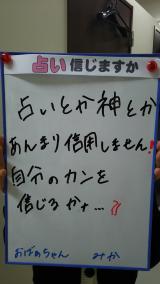 占い信じますか
占いとか神とか
あんまり信用しません!
自分のカンを
信じるかナ…
おばあちゃん みか